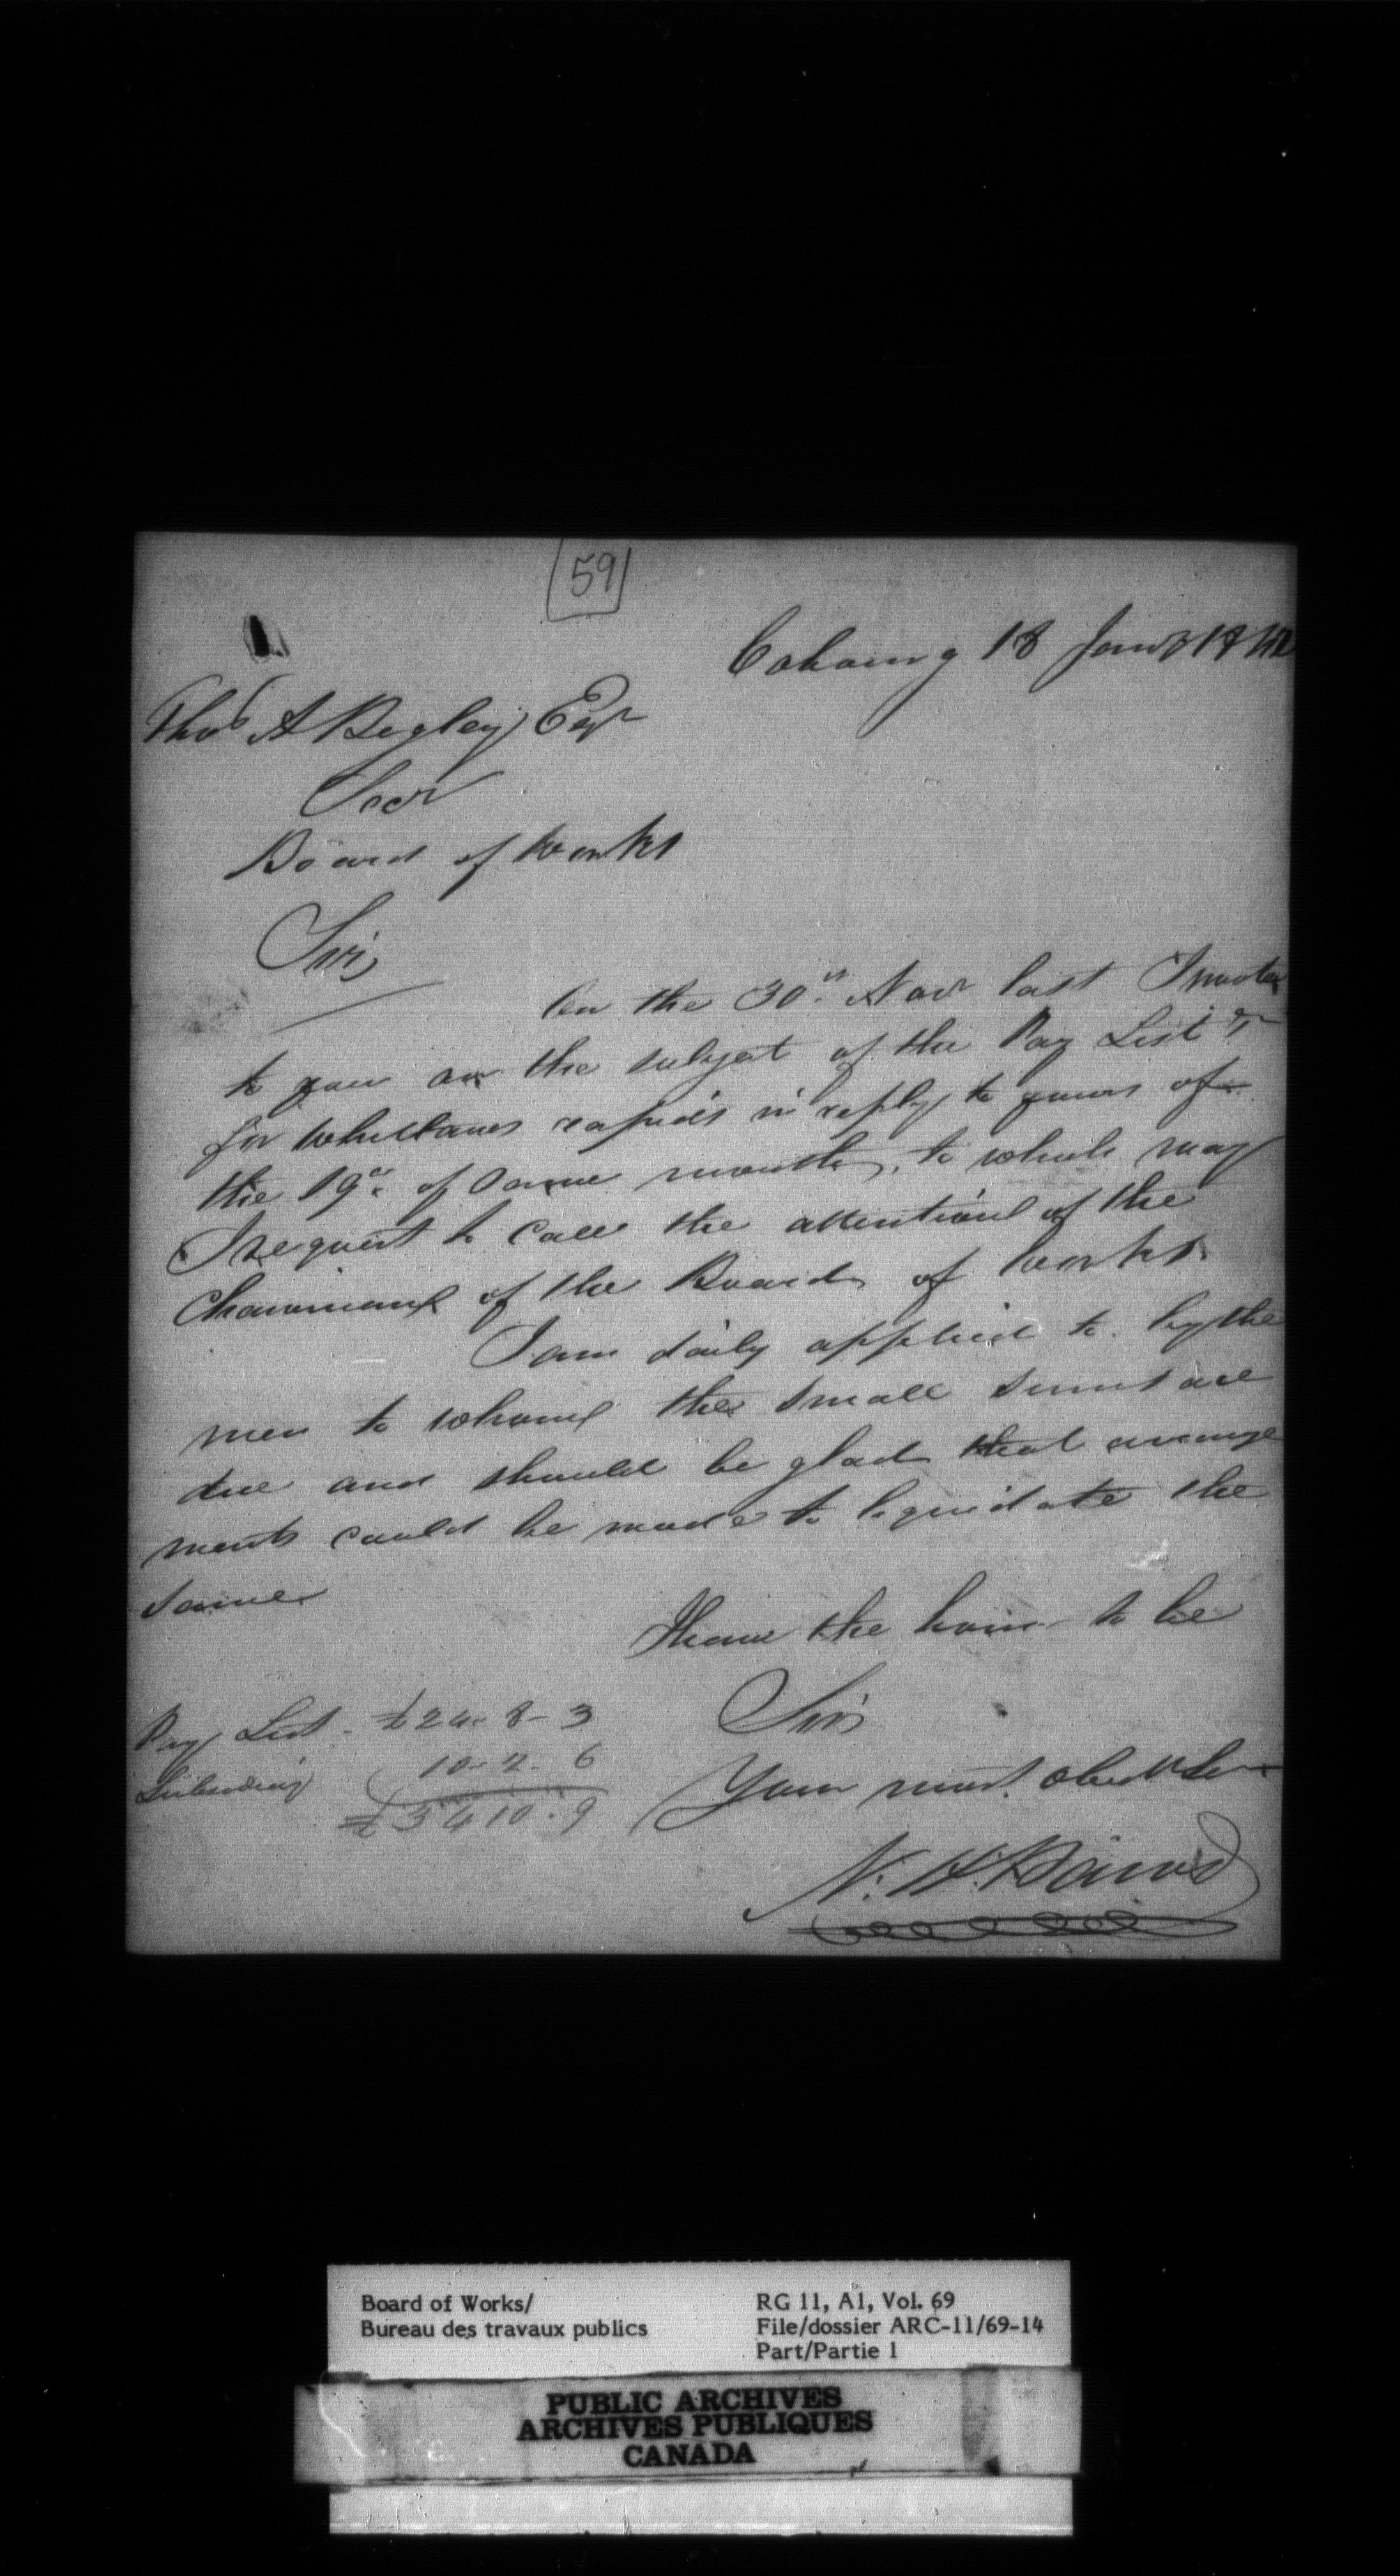 59
Cobourg 18 Jany 1842
Thos A Begley Esqr
Secr
Board of Works
Sir,
On the 30th Novr last I wrote
to you on the subject of the Pay List &
for Whitlaws rapids in reply to yours of
the 19th of same month, to which may
I request to call the attention of the
Chairman of the Board of Works.
I am daily applied to by the
men to whom the small sums are
due and should be glad that arrange
ments could be made to liquidate the
same
I have the honor to be
Sir
Your most obedt Ser
N. H. Baird
Pay List. £24-8-3
10-2-6
£34 10.9
Board of Works/
Bureau des travaux publics
RG 11, A1, Vol. 69
File/dossier ARC-11/69-14
Part/Partie 1
PUBLIC ARCHIVES
ARCHIVES PUBLIQUES
CANADA